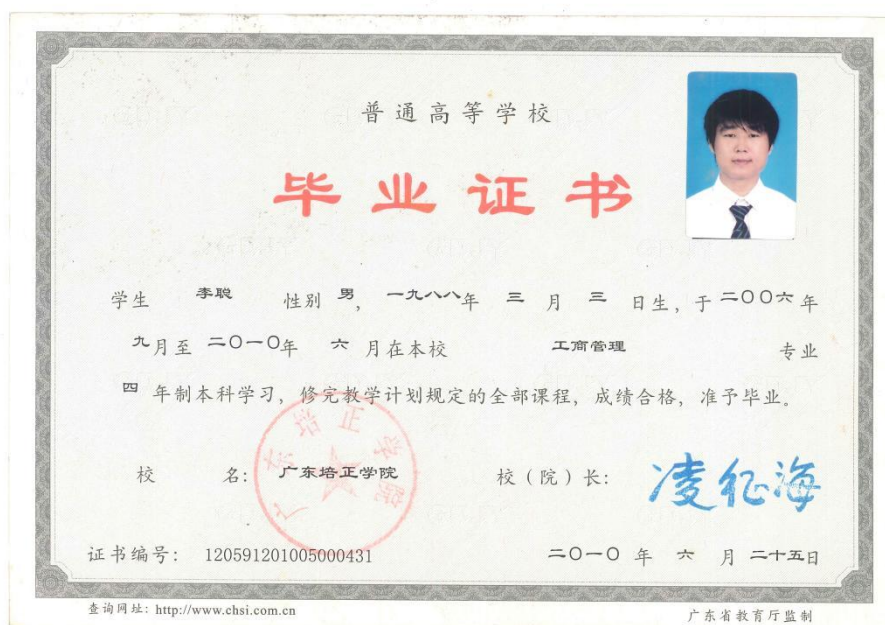 普通高等学校
毕业证书
学生 李聪 性别 男, 一九八八年 三 月 三 日生, 于 二〇〇六 年
九月至 二〇一〇年 六 月在本校 工商管理 专业
四 年制本科学习, 修完教学计划规定的全部课程, 成绩合格, 准予毕业。
校 名: 广东培正学院 校（院）长: 凌征海
广东培正学院
证书编号: 120591201005000431 二〇一〇 年 六 月 二十五日
查询网址: http://www.chsi.com.cn 广东省教育厅监制